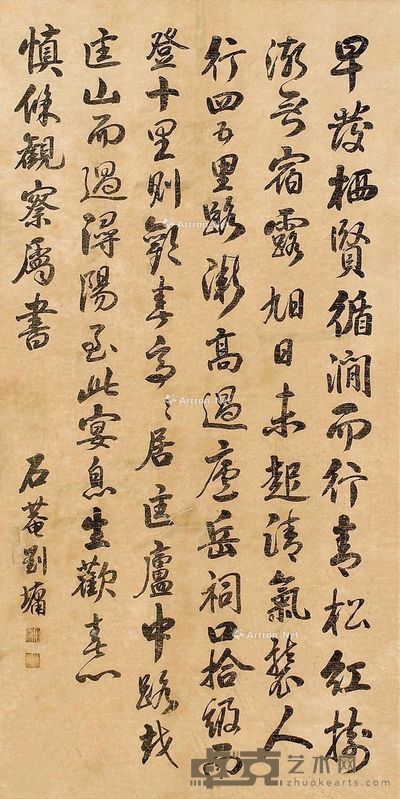 早發栖賢循澗而行青松紅樹
宿露旭日未起清氣襲人
行四五里路漸高過廬岳祠口拾級而
登十里則歡喜亭〻居匡廬中路越
匡山而過潯陽至此宴息生歡喜心
慎條觀察屬書
石菴劉墉
Artron.Net
Artron.Net
Artron.Net
卓克艺术网
www.zhuokearts.com